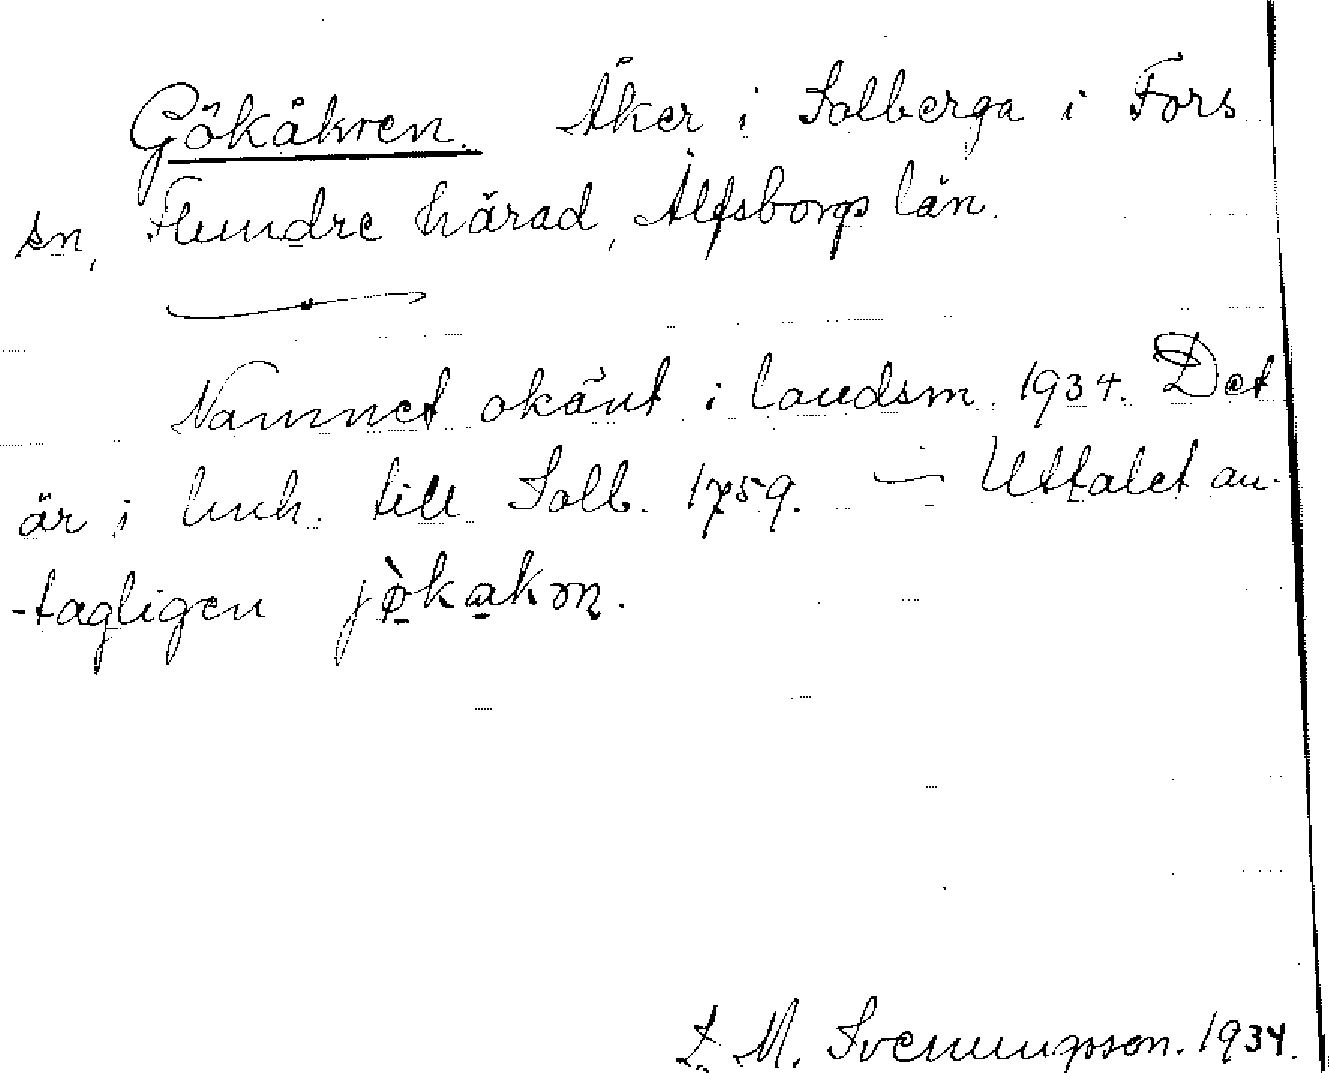 Gökåkren. Åker i Solberga i Fors
sn, Flundre härad, Älfsborgs län.
Namnet okänt i landsm. 1934. Det
är i luck. till Solb. 1759. — Uttalet an-
-tagligen jökakrn.
L. M. Svenungsson. 1934.